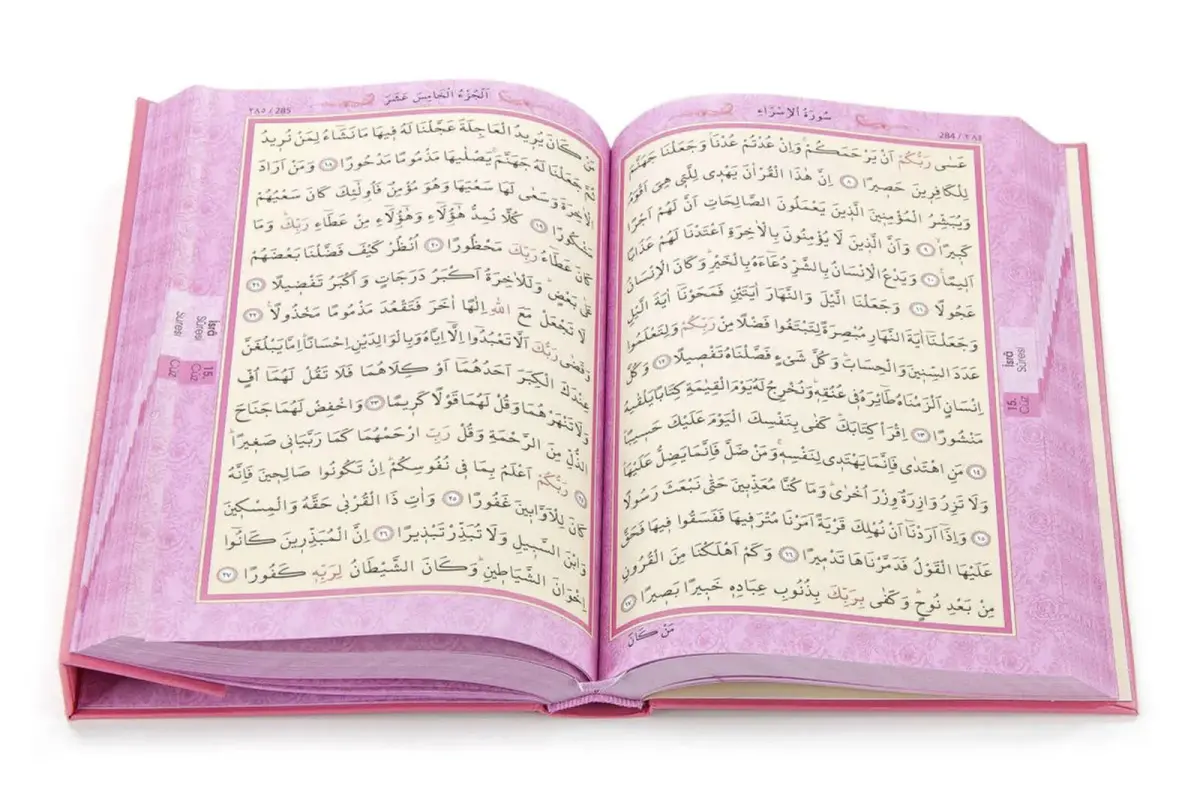 سُورَةُ الْاِسْرَاءِ
284 / ٢٨٤
عَسٰى رَبُّكُمْ اَنْ يَرْحَمَكُمْۚ وَاِنْ عُدْتُمْ عُدْنَاۢ وَجَعَلْنَا جَهَنَّمَ
لِلْكَافِرِينَ حَصِيرًا ﴿٨﴾ اِنَّ هٰذَا الْقُرْاٰنَ يَهْدِى لِلَّتِى هِىَ اَقْوَمُ
وَيُبَشِّرُ الْمُؤْمِنِينَ الَّذِينَ يَعْمَلُونَ الصَّالِحَاتِ اَنَّ لَهُمْ اَجْرًا
كَبِيرًاۙ ﴿٩﴾ وَاَنَّ الَّذِينَ لَا يُؤْمِنُونَ بِالْاٰخِرَةِ اَعْتَدْنَا لَهُمْ عَذَابًا
اَلِيمًا۟ ﴿١٠﴾ وَيَدْعُ الْاِنْسَانُ بِالشَّرِّ دُعَٓاءَهُ بِالْخَيْرِۜ وَكَانَ الْاِنْسَانُ
عَجُولًا ﴿١١﴾ وَجَعَلْنَا الَّيْلَ وَالنَّهَارَ اٰيَتَيْنِ فَمَحَوْنَٓا اٰيَةَ الَّيْلِ
وَجَعَلْنَٓا اٰيَةَ النَّهَارِ مُبْصِرَةً لِتَبْتَغُوا فَضْلًا مِنْ رَبِّكُمْ وَلِتَعْلَمُوا
عَدَدَ السِّنِينَ وَالْحِسَابَۜ وَكُلَّ شَىْءٍ فَصَّلْنَاهُ تَفْصِيلًا ﴿١٢﴾ وَكُلَّ
اِنْسَانٍ اَلْزَمْنَاهُ طَٓائِرَهُ فِى عُنُقِهِۜ وَنُخْرِجُ لَهُ يَوْمَ الْقِيٰمَةِ كِتَابًا يَلْقٰيهُ
مَنْشُورًا ﴿١٣﴾ اِقْرَأْ كِتَابَكَۜ كَفٰى بِنَفْسِكَ الْيَوْمَ عَلَيْكَ حَسِيبًاۜ
﴿١٤﴾ مَنِ اهْتَدٰى فَاِنَّمَا يَهْتَدِى لِنَفْسِهِۚ وَمَنْ ضَلَّ فَاِنَّمَا يَضِلُّ عَلَيْهَاۜ
وَلَا تَزِرُ وَازِرَةٌ وِزْرَ اُخْرٰىۜ وَمَا كُنَّا مُعَذِّبِينَ حَتّٰى نَبْعَثَ رَسُولًا
﴿١٥﴾ وَاِذَٓا اَرَدْنَٓا اَنْ نُهْلِكَ قَرْيَةً اَمَرْنَا مُتْرَفِيهَا فَفَسَقُوا فِيهَا فَحَقَّ
عَلَيْهَا الْقَوْلُ فَدَمَّرْنَاهَا تَدْمِيرًا ﴿١٦﴾ وَكَمْ اَهْلَكْنَا مِنَ الْقُرُونِ
مِنْ بَعْدِ نُوحٍۜ وَكَفٰى بِرَبِّكَ بِذُنُوبِ عِبَادِهِ خَبِيرًا بَصِيرًا ﴿١٧﴾
مَنْ كَانَ
İsrâ Sûresi
15. Cüz
اَلْجُزْءُ الْخَامِسَ عَشَرَ
٢٨٥ / 285
مَنْ كَانَ يُرِيدُ الْعَاجِلَةَ عَجَّلْنَا لَهُ فِيهَا مَا نَشَٓاءُ لِمَنْ نُرِيدُ
ثُمَّ جَعَلْنَا لَهُ جَهَنَّمَۚ يَصْلٰيهَا مَذْمُومًا مَدْحُورًا ﴿١٨﴾ وَمَنْ اَرَادَ
الْاٰخِرَةَ وَسَعٰى لَهَا سَعْيَهَا وَهُوَ مُؤْمِنٌ فَاُولٰٓئِكَ كَانَ سَعْيُهُمْ
مَشْكُورًا ﴿١٩﴾ كُلًّا نُمِدُّ هٰٓؤُلَٓاءِ وَهٰٓؤُلَٓاءِ مِنْ عَطَٓاءِ رَبِّكَۜ وَمَا
كَانَ عَطَٓاءُ رَبِّكَ مَحْظُورًا ﴿٢٠﴾ اُنْظُرْ كَيْفَ فَضَّلْنَا بَعْضَهُمْ
عَلٰى بَعْضٍۜ وَلَلْاٰخِرَةُ اَكْبَرُ دَرَجَاتٍ وَاَكْبَرُ تَفْضِيلًا ﴿٢١﴾
لَا تَجْعَلْ مَعَ اللّٰهِ اِلٰهًا اٰخَرَ فَتَقْعُدَ مَذْمُومًا مَخْذُولًا۟ ﴿٢٢﴾
وَقَضٰى رَبُّكَ اَلَّا تَعْبُدُٓوا اِلَّٓا اِيَّاهُ وَبِالْوَالِدَيْنِ اِحْسَانًاۜ اِمَّا يَبْلُغَنَّ
عِنْدَكَ الْكِبَرَ اَحَدُهُمَٓا اَوْ كِلَاهُمَا فَلَا تَقُلْ لَهُمَٓا اُفٍّ
وَلَا تَنْهَرْهُمَا وَقُلْ لَهُمَا قَوْلًا كَرِيمًا ﴿٢٣﴾ وَاخْفِضْ لَهُمَا جَنَاحَ
الذُّلِّ مِنَ الرَّحْمَةِ وَقُلْ رَبِّ ارْحَمْهُمَا كَمَا رَبَّيَانِى صَغِيرًاۜ
﴿٢٤﴾ رَبُّكُمْ اَعْلَمُ بِمَا فِى نُفُوسِكُمْۜ اِنْ تَكُونُوا صَالِحِينَ فَاِنَّهُ
كَانَ لِلْاَوَّابِينَ غَفُورًا ﴿٢٥﴾ وَاٰتِ ذَا الْقُرْبٰى حَقَّهُ وَالْمِسْكِينَ
وَابْنَ السَّبِيلِ وَلَا تُبَذِّرْ تَبْذِيرًا ﴿٢٦﴾ اِنَّ الْمُبَذِّرِينَ كَانُٓوا
اِخْوَانَ الشَّيَاطِينِۜ وَكَانَ الشَّيْطَانُ لِرَبِّهِ كَفُورًا ﴿٢٧﴾
İsrâ Sûresi
Sûresi
15. Cüz
Cüz